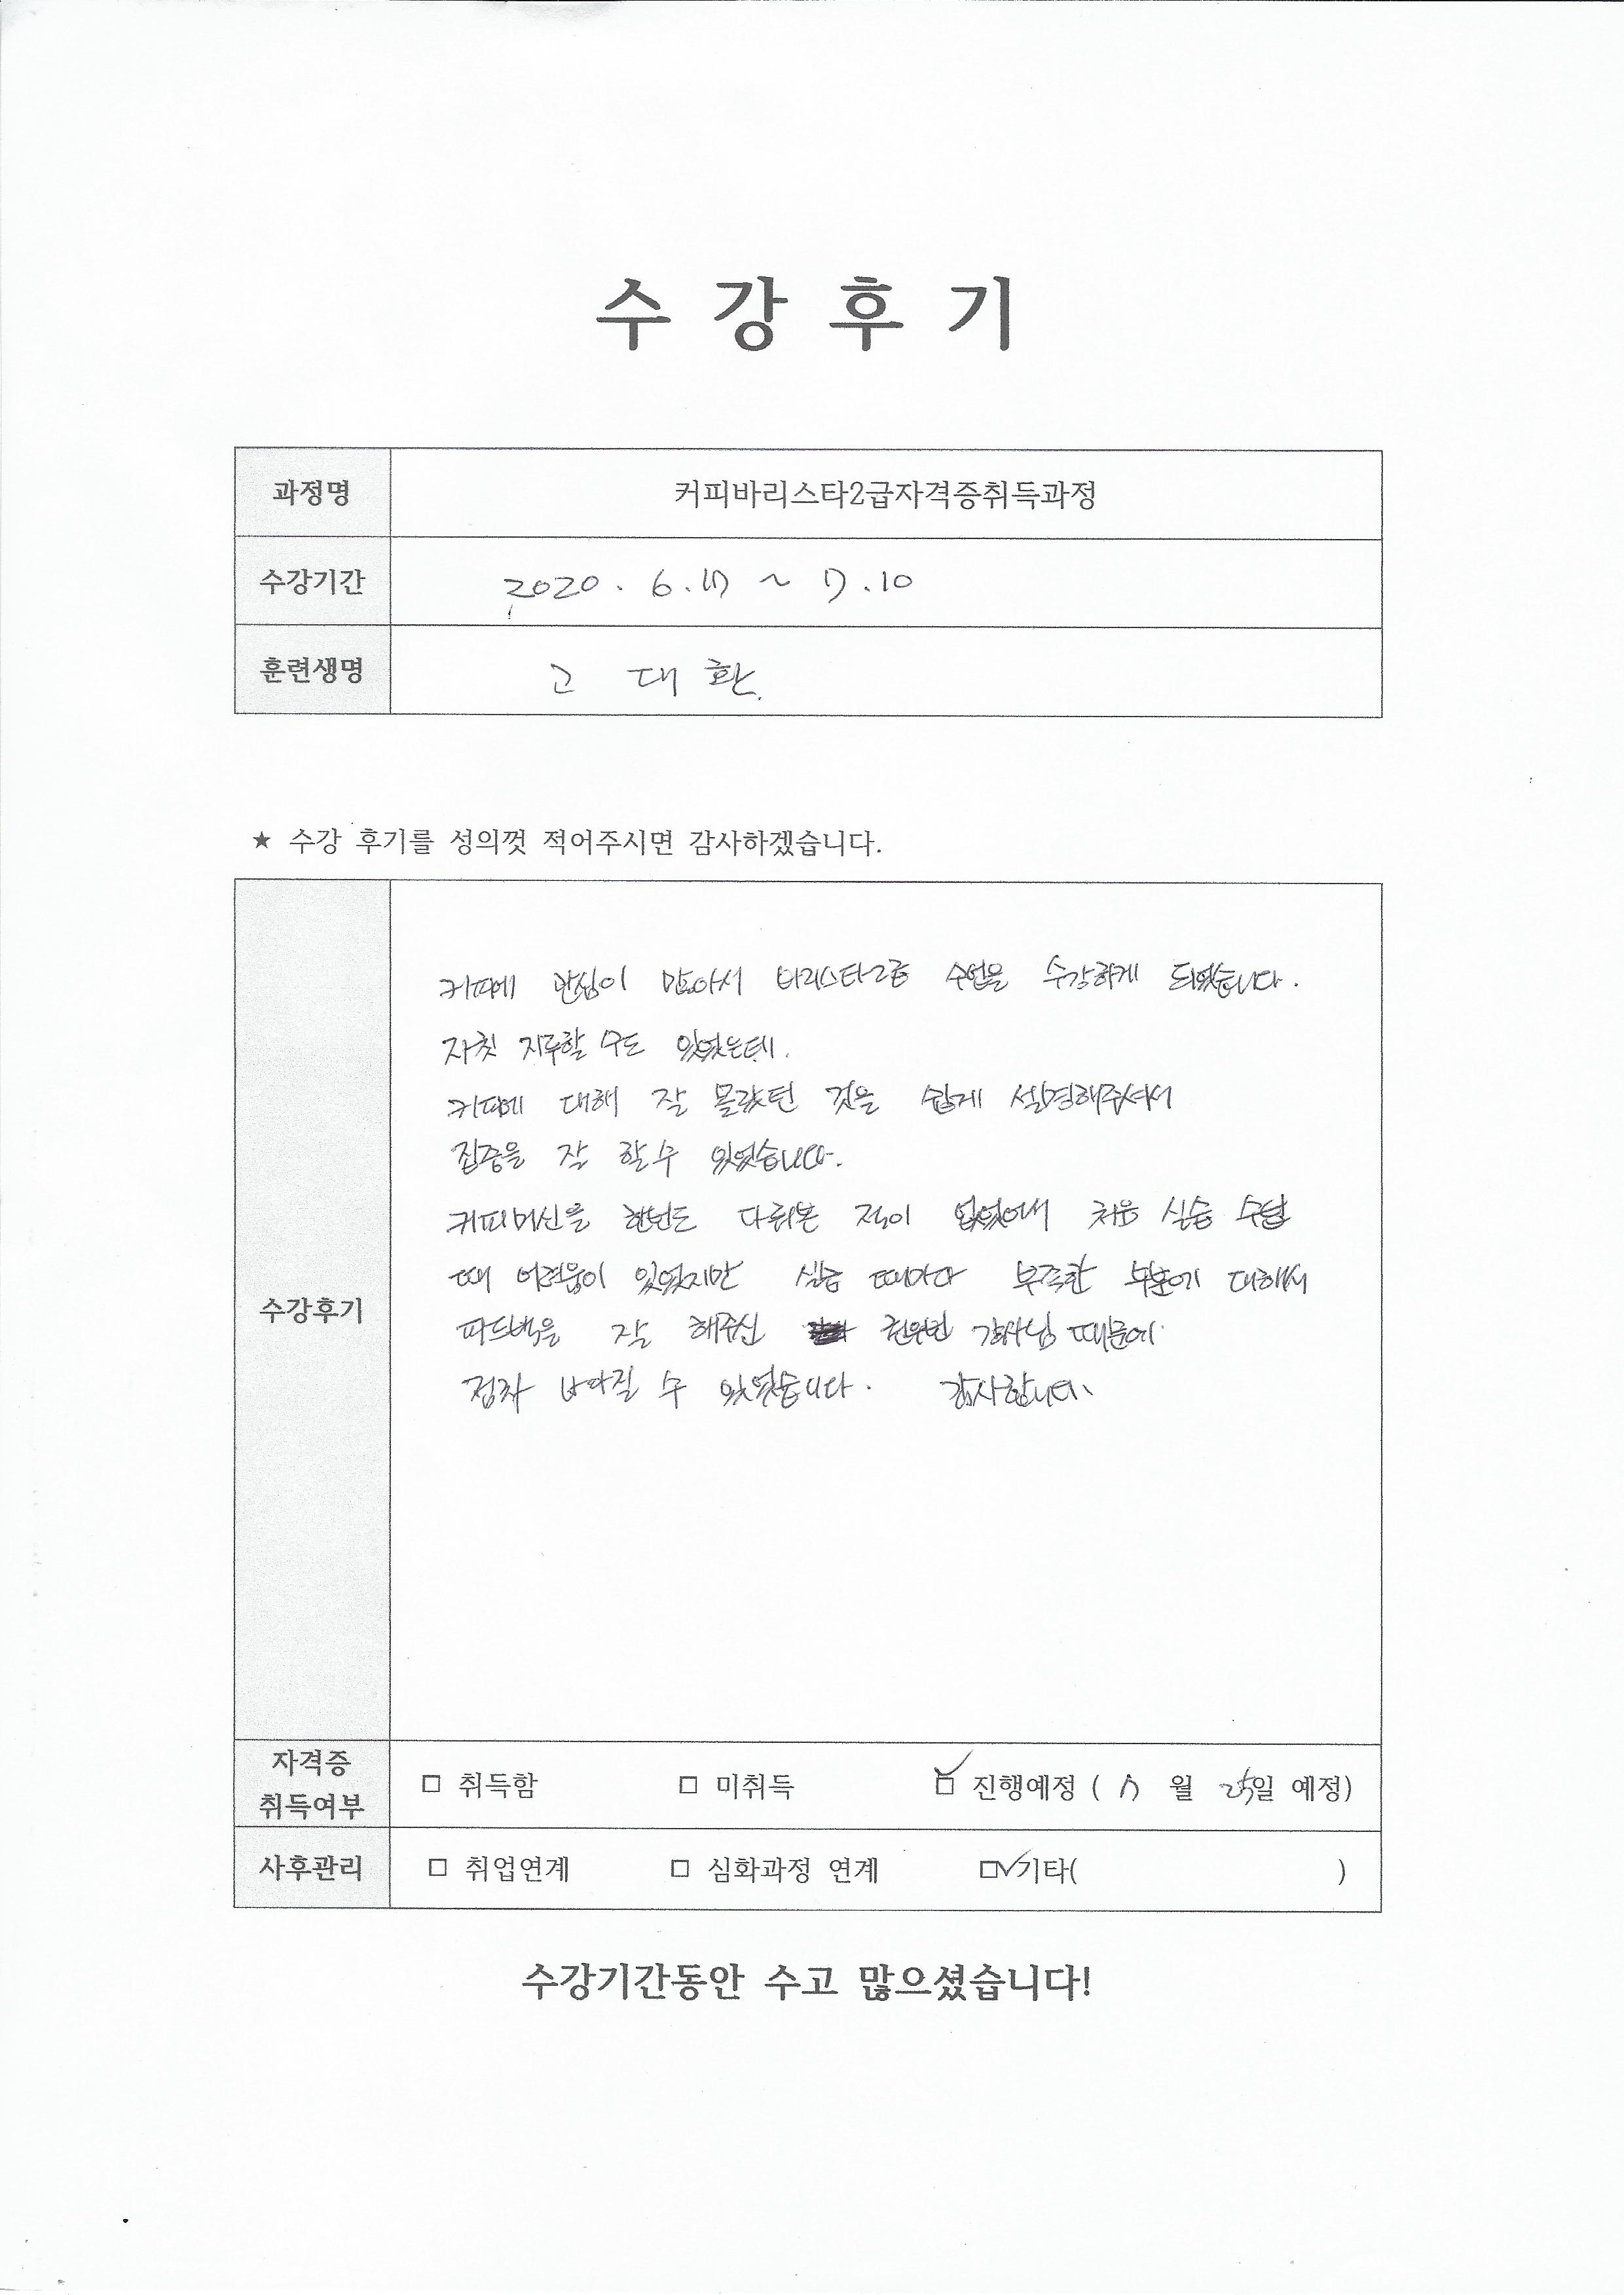 수 강 후 기
과정명 커피바리스타2급자격증취득과정
수강기간 2020. 6.17 ~ 7.10
훈련생명 고 대 환
★ 수강 후기를 성의껏 적어주시면 감사하겠습니다.
수강후기
커피에 관심이 많아서 바리스타2급 수업을 수강하게 되었습니다.
자칫 지루할 수도 있었는데.
커피에 대해 잘 몰랐던 것을 쉽게 설명해주셔서
집중을 잘 할 수 있었습니다.
커피머신을 한번도 다뤄본 적이 없었어서 처음 실습 수업
때 어려움이 있었지만 실습 때마다 부족한 부분에 대해서
피드백을 잘 해주신 강사님 때문에
점차 나아질 수 있었습니다. 감사합니다
자격증 취득여부 □ 취득함 □ 미취득 ☑ 진행예정 ( 7 월 25일 예정)
사후관리 □ 취업연계 □ 심화과정 연계 ☑ 기타( )
수강기간동안 수고 많으셨습니다!